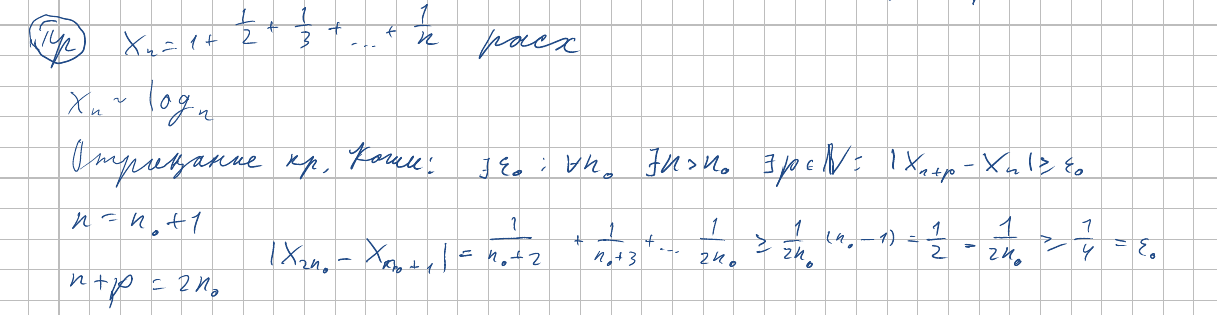 Пр Xₙ = 1 + 1/2 + 1/3 + ... + 1/n расх
Xₙ ~ logₙ
Отрицание кр. Коши: ∃ε₀ : ∀n₀ ∃n>n₀ ∃p∈ℕ: |Xₙ₊ₚ - Xₙ| ≥ ε₀
n = n₀+1
|X₂ₙ₀ - Xₙ₀₊₁| = 1/(n₀+2) + 1/(n₀+3) + ... 1/(2n₀) ≥ 1/(2n₀) (n₀-1) = 1/2 - 1/(2n₀) ≥ 1/4 = ε₀
n+p = 2n₀